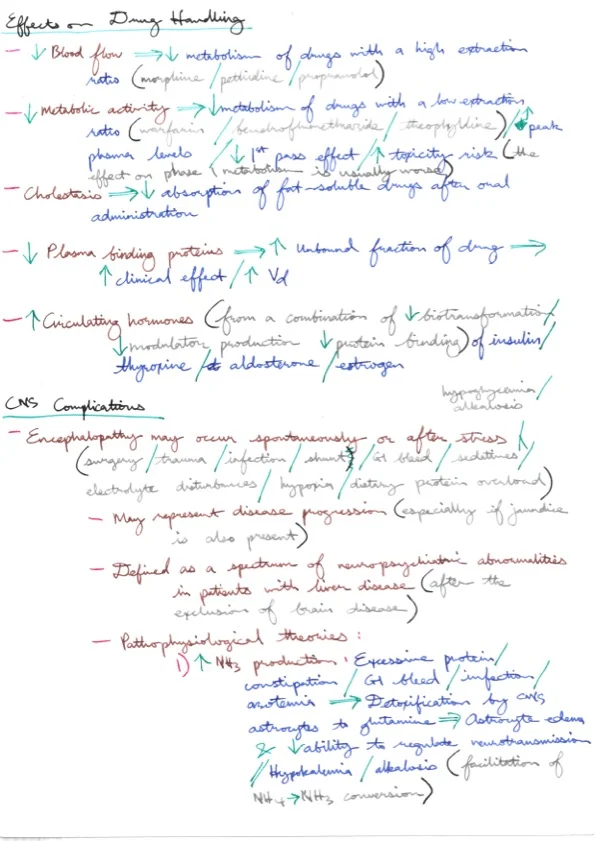 Effects on Drug Handling
- ↓ Blood flow ⇒ ↓ metabolism of drugs with a high extraction
ratio (morphine / pethidine / propranolol)
- ↓ Metabolic activity ⇒ ↓ metabolism of drugs with a low extraction
ratio (warfarin / bendroflumethazide / theophylline) / ↑ peak
plasma levels / ↓ 1st pass effect / ↑ toxicity risk (the
effect on phase 1 metabolism is usually worse)
- Cholestasis ⇒ ↓ absorption of fat-soluble drugs after oral
administration
- ↓ Plasma binding proteins ⇒ ↑ Unbound fraction of drug ⇒
↑ clinical effect / ↑ Vd
- ↑ Circulating hormones (from a combination of ↓ biotransformation /
↓ modulator production ↓ protein binding) of insulin /
thyroxine / aldosterone / estrogen
CNS Complications
hypoglycemia /
alkalosis
- Encephalopathy may occur spontaneously or after stress
(surgery / trauma / infection / shunt / GI bleed / sedatives /
electrolyte disturbances / hypoxia / dietary protein overload)
- May represent disease progression (especially if jaundice
is also present)
- Defined as a spectrum of neuropsychiatric abnormalities
in patients with liver disease (after the
exclusion of brain disease)
- Pathophysiological theories :
1) ↑ NH3 production : Excessive protein /
constipation / GI bleed / infection /
azotemia ⇒ Detoxification by CNS
astrocytes to glutamine ⇒ Astrocyte edema
& ↓ ability to regulate neurotransmission
// Hypokalemia / alkalosis (facilitation of
NH4 → NH3 conversion)